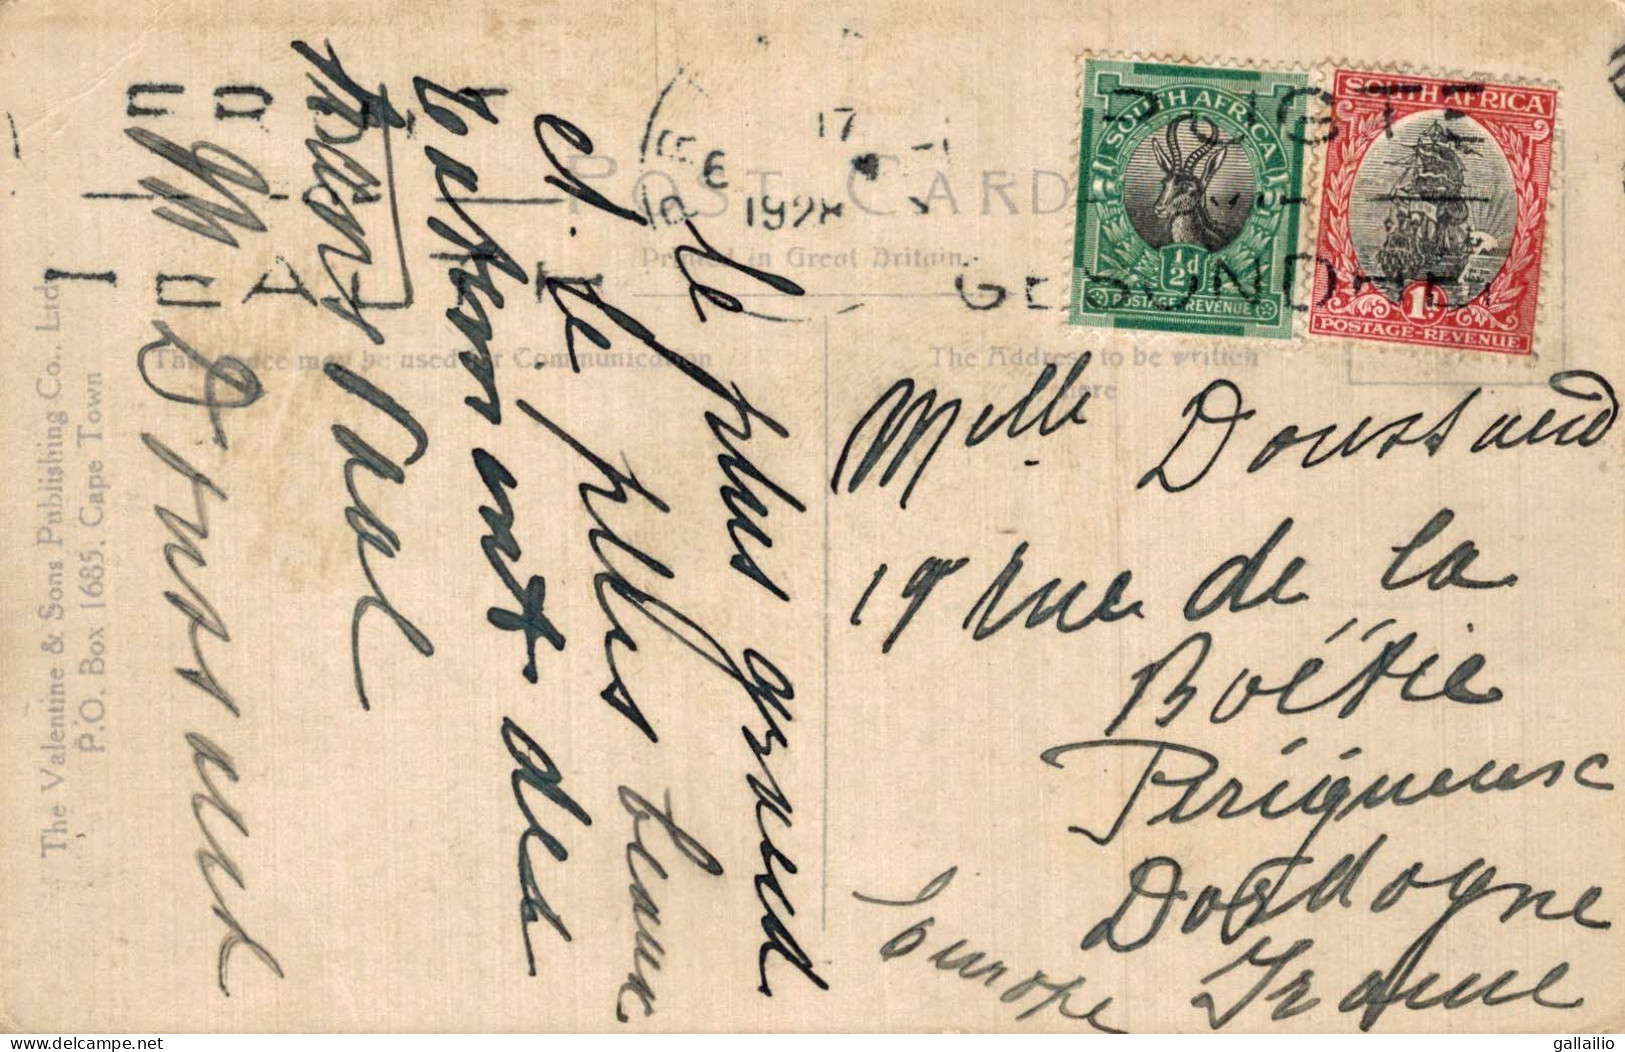 POST CARD
Printed in Great Britain.
This space may be used for Communication
The Address to be written
here
The Valentine & Sons Publishing Co., Ltd.
P.O. Box 1685, Cape Town
SOUTH AFRICA
½d
POSTAGE-REVENUE
SOUTH AFRICA
1D
POSTAGE-REVENUE
17
6
1928
GESONDHEI
le plus grand
et le plus beau
bâtiment de
Doussaud
Melle Doussaud
19 rue de la
Boëtie
Périgueux
Dordogne
France
Europe
gallailio © Delcampe.net